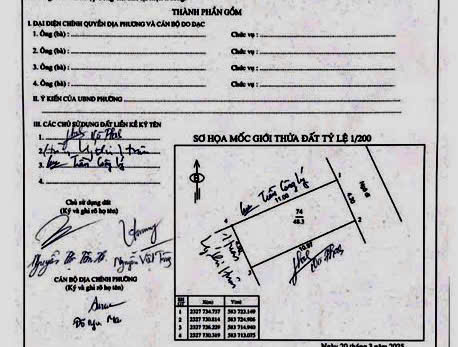 THÀNH PHẦN GỒM
I. ĐẠI DIỆN CHÍNH QUYỀN ĐỊA PHƯƠNG VÀ CÁN BỘ ĐO ĐẠC
1. Ông (bà) : Chức vụ :
2. Ông (bà) : Chức vụ :
3. Ông (bà) : Chức vụ :
4. Ông (bà) : Chức vụ :
II. Ý KIẾN CỦA UBND PHƯỜNG
III. CÁC CHỦ SỬ DỤNG ĐẤT LIỀN KỀ KÝ TÊN
1.
2.
3. Trần Công Lý
4.
SƠ HỌA MỐC GIỚI THỬA ĐẤT TỶ LỆ 1/200
Trần Công Lý
11.00
4
1
74
48.3
4.20
Ngõ đi
3
10.97
2
Chủ sử dụng đất
(Ký và ghi rõ họ tên)
Nguyễn
Nguyễn Văn
CÁN BỘ ĐỊA CHÍNH PHƯỜNG
(Ký và ghi rõ họ tên)
X(m) Y(m)
1 2327 734.737 583 723.149
2 2327 730.814 583 724.906
3 2327 726.229 583 714.940
4 2327 730.369 583 713.075
Ngày 20 tháng 3 năm 2025